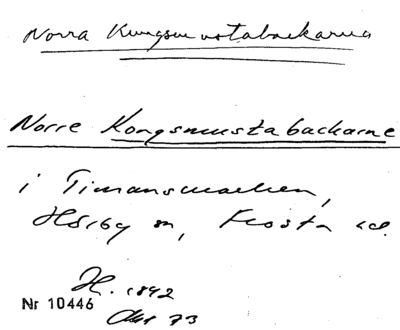 Norra Kungsmustabackarna
Norre Kongsmustabackarne
i Timansmarken,
Hörby sn, Frosta hd.
H. 1892
Nr 10446
Akt 73